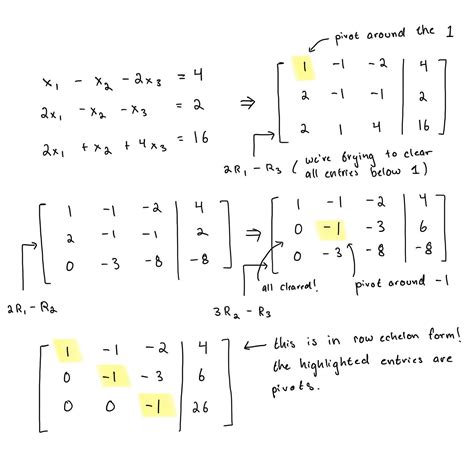 pivot around the 1
x₁ - x₂ - 2x₃ = 4
2x₁ - x₂ - x₃ = 2
2x₁ + x₂ + 4x₃ = 16
⇒
[ 1 -1 -2 | 4 ]
[ 2 -1 -1 | 2 ]
[ 2 1 4 | 16 ]
2R₁ - R₃ (we're trying to clear
all entries below 1)
[ 1 -1 -2 | 4 ]
[ 2 -1 -1 | 2 ]
[ 0 -3 -8 | -8 ]
2R₁ - R₂
⇒
[ 1 -1 -2 | 4 ]
[ 0 -1 -3 | 6 ]
[ 0 -3 -8 | -8 ]
all cleared!
pivot around -1
3R₂ - R₃
[ 1 -1 -2 | 4 ]
[ 0 -1 -3 | 6 ]
[ 0 0 -1 | 26 ]
this is in row echelon form!
the highlighted entries are
pivots.